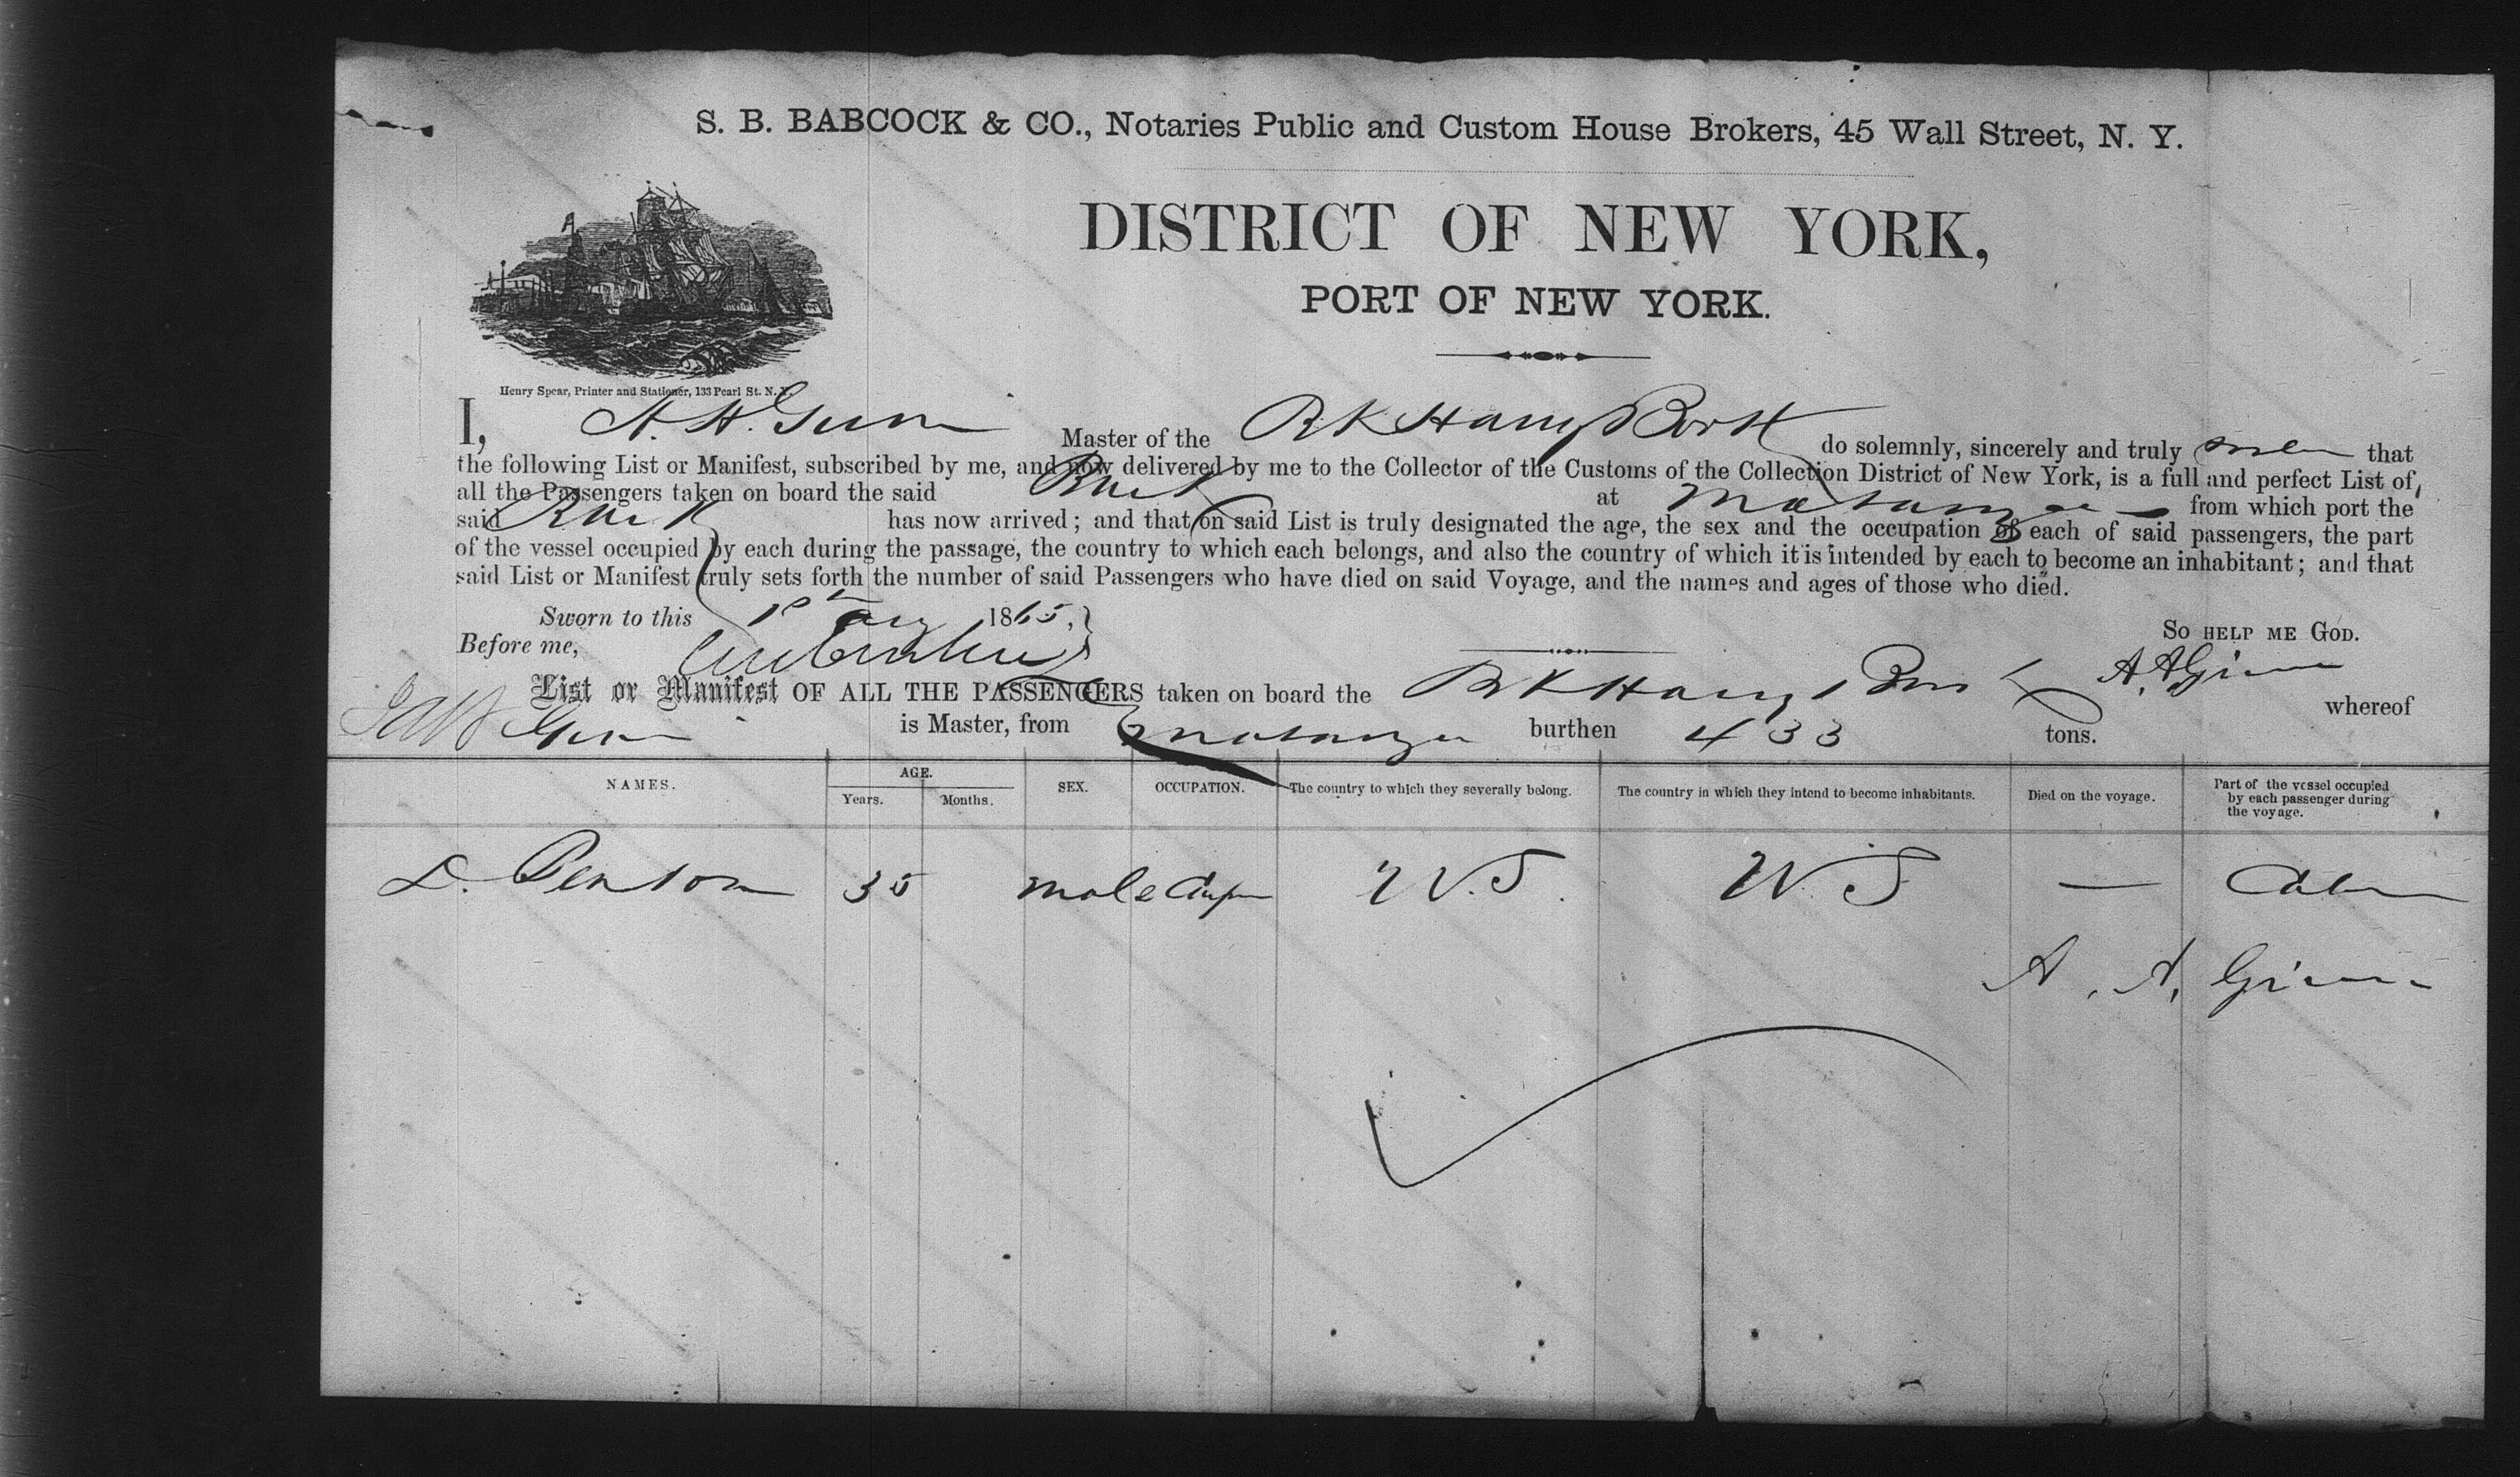 S. B. BABCOCK & CO., Notaries Public and Custom House Brokers, 45 Wall Street, N. Y.
DISTRICT OF NEW YORK,
PORT OF NEW YORK.
Henry Spear, Printer and Stationer, 133 Pearl St. N. Y.
I, Master of the do solemnly, sincerely and truly that
the following List or Manifest, subscribed by me, and now delivered by me to the Collector of the Customs of the Collection District of New York, is a full and perfect List of
all the Passengers taken on board the said Bark at Matanzas from which port the
said Bark has now arrived; and that on said List is truly designated the age, the sex and the occupation of each of said passengers, the part
of the vessel occupied by each during the passage, the country to which each belongs, and also the country of which it is intended by each to become an inhabitant; and that
said List or Manifest truly sets forth the number of said Passengers who have died on said Voyage, and the names and ages of those who died.
Sworn to this 1st Aug 1865,
So HELP ME GOD.
Before me,
List or Manifest OF ALL THE PASSENGERS taken on board the whereof
is Master, from Matanzas burthen 433 tons.
NAMES. AGE. Years. Months. SEX. OCCUPATION. The country to which they severally belong. The country in which they intend to become inhabitants. Died on the voyage. Part of the vessel occupied by each passenger during the voyage.
35 male U.S. U.S —